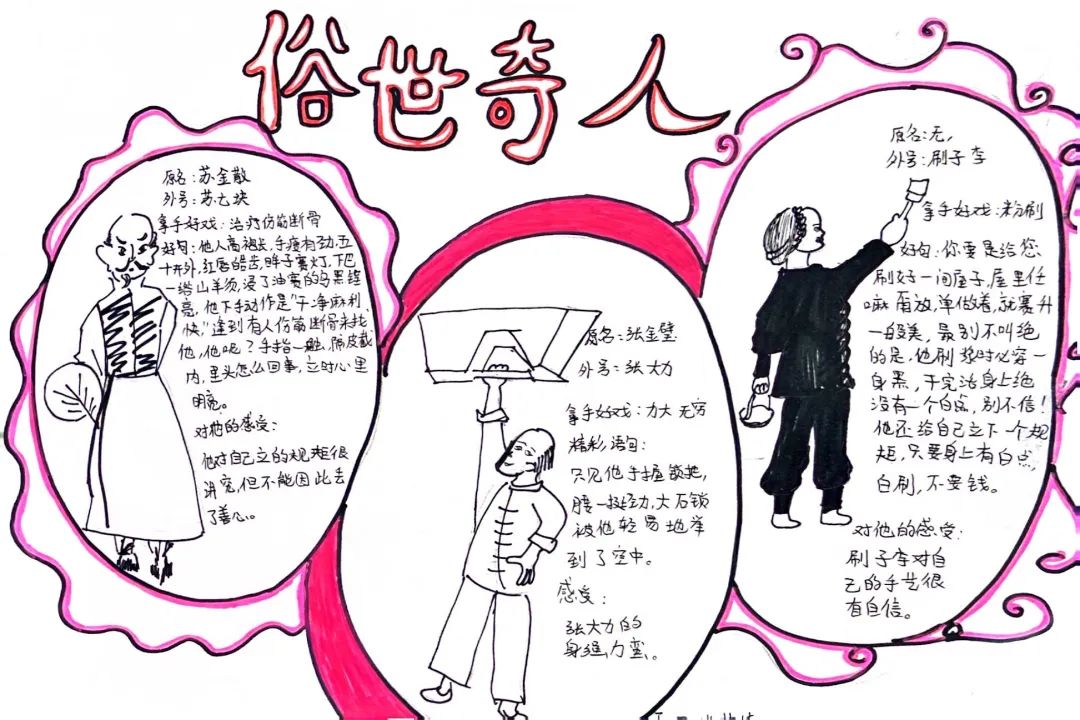 俗世奇人
原名:苏金散
外号:苏七块
拿手好戏:治疗伤筋断骨
好句:他人高袍长,手瘦有劲,五
十开外,红唇皓齿,眸子赛灯,下巴
一绺山羊须,浸了油赛的乌黑锃
亮。他下手动作是"干净麻利
快,"逢到有人伤筋断骨来找
他,他呢?手指一触,隔皮截
内,里头怎么回事,立时心里
明亮。
对他的感受:
他对自己立的规矩很
讲究,但不能因此丢
了善心。
原名:张金璧
外号:张大力
拿手好戏:力大无穷
精彩语句:
只见他手握锁把,
腰一挺劲,大石锁
被他轻易地举
到了空中。
感受:
张大力的
身强力蛮。
原名:无,
外号:刷子李
拿手好戏:粉刷
好句:你要是给您
刷好一间屋子,屋里任
嘛甭放,单做着,就赛升
一般美,最别不叫绝
的是,他刷浆时必穿一
身黑,干完活身上绝
没有一个白点,别不信!
他还给自己立下一个规
矩,只要身上有白点,
白刷,不要钱。
对他的感受:
刷子李对自
己的手艺很
有自信。